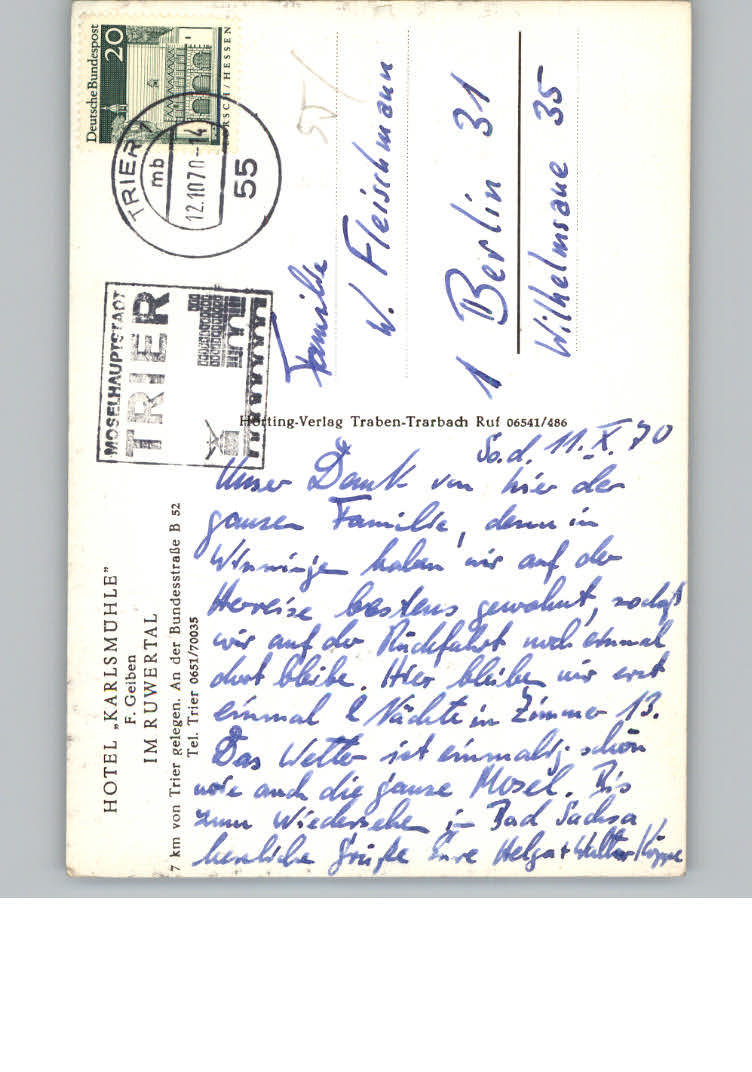 Deutsche Bundespost
20
LORSCH/HESSEN
TRIER 1
mb
12.10.70-14
55
MOSELHAUPTSTADT
TRIER
55
Familie
W. Fleischmann
1 Berlin 31
Wilhelmsaue 35
Hörting-Verlag Traben-Trarbach Ruf 06541/486
HOTEL „KARLSMÜHLE"
F. Geiben
IM RUWERTAL
7 km von Trier gelegen. An der Bundesstraße B 52
Tel. Trier 0651/70035
So. d. 11. X. 70
Unser Dank von hier der
ganzen Familie, denn in
Winningen haben wir auf der
Herreise bestens gewohnt, sodaß
wir auf der Rückfahrt noch einmal
dort bleibe. Hier bleiben wir erst
einmal 2 Nächte in Zimmer 13.
Das Wetter ist einmalig schön
wie auch die ganze Mosel. Bis
zum Wiedersehen in Bad Sachsa
herzliche Grüße Eure Helga + Walter